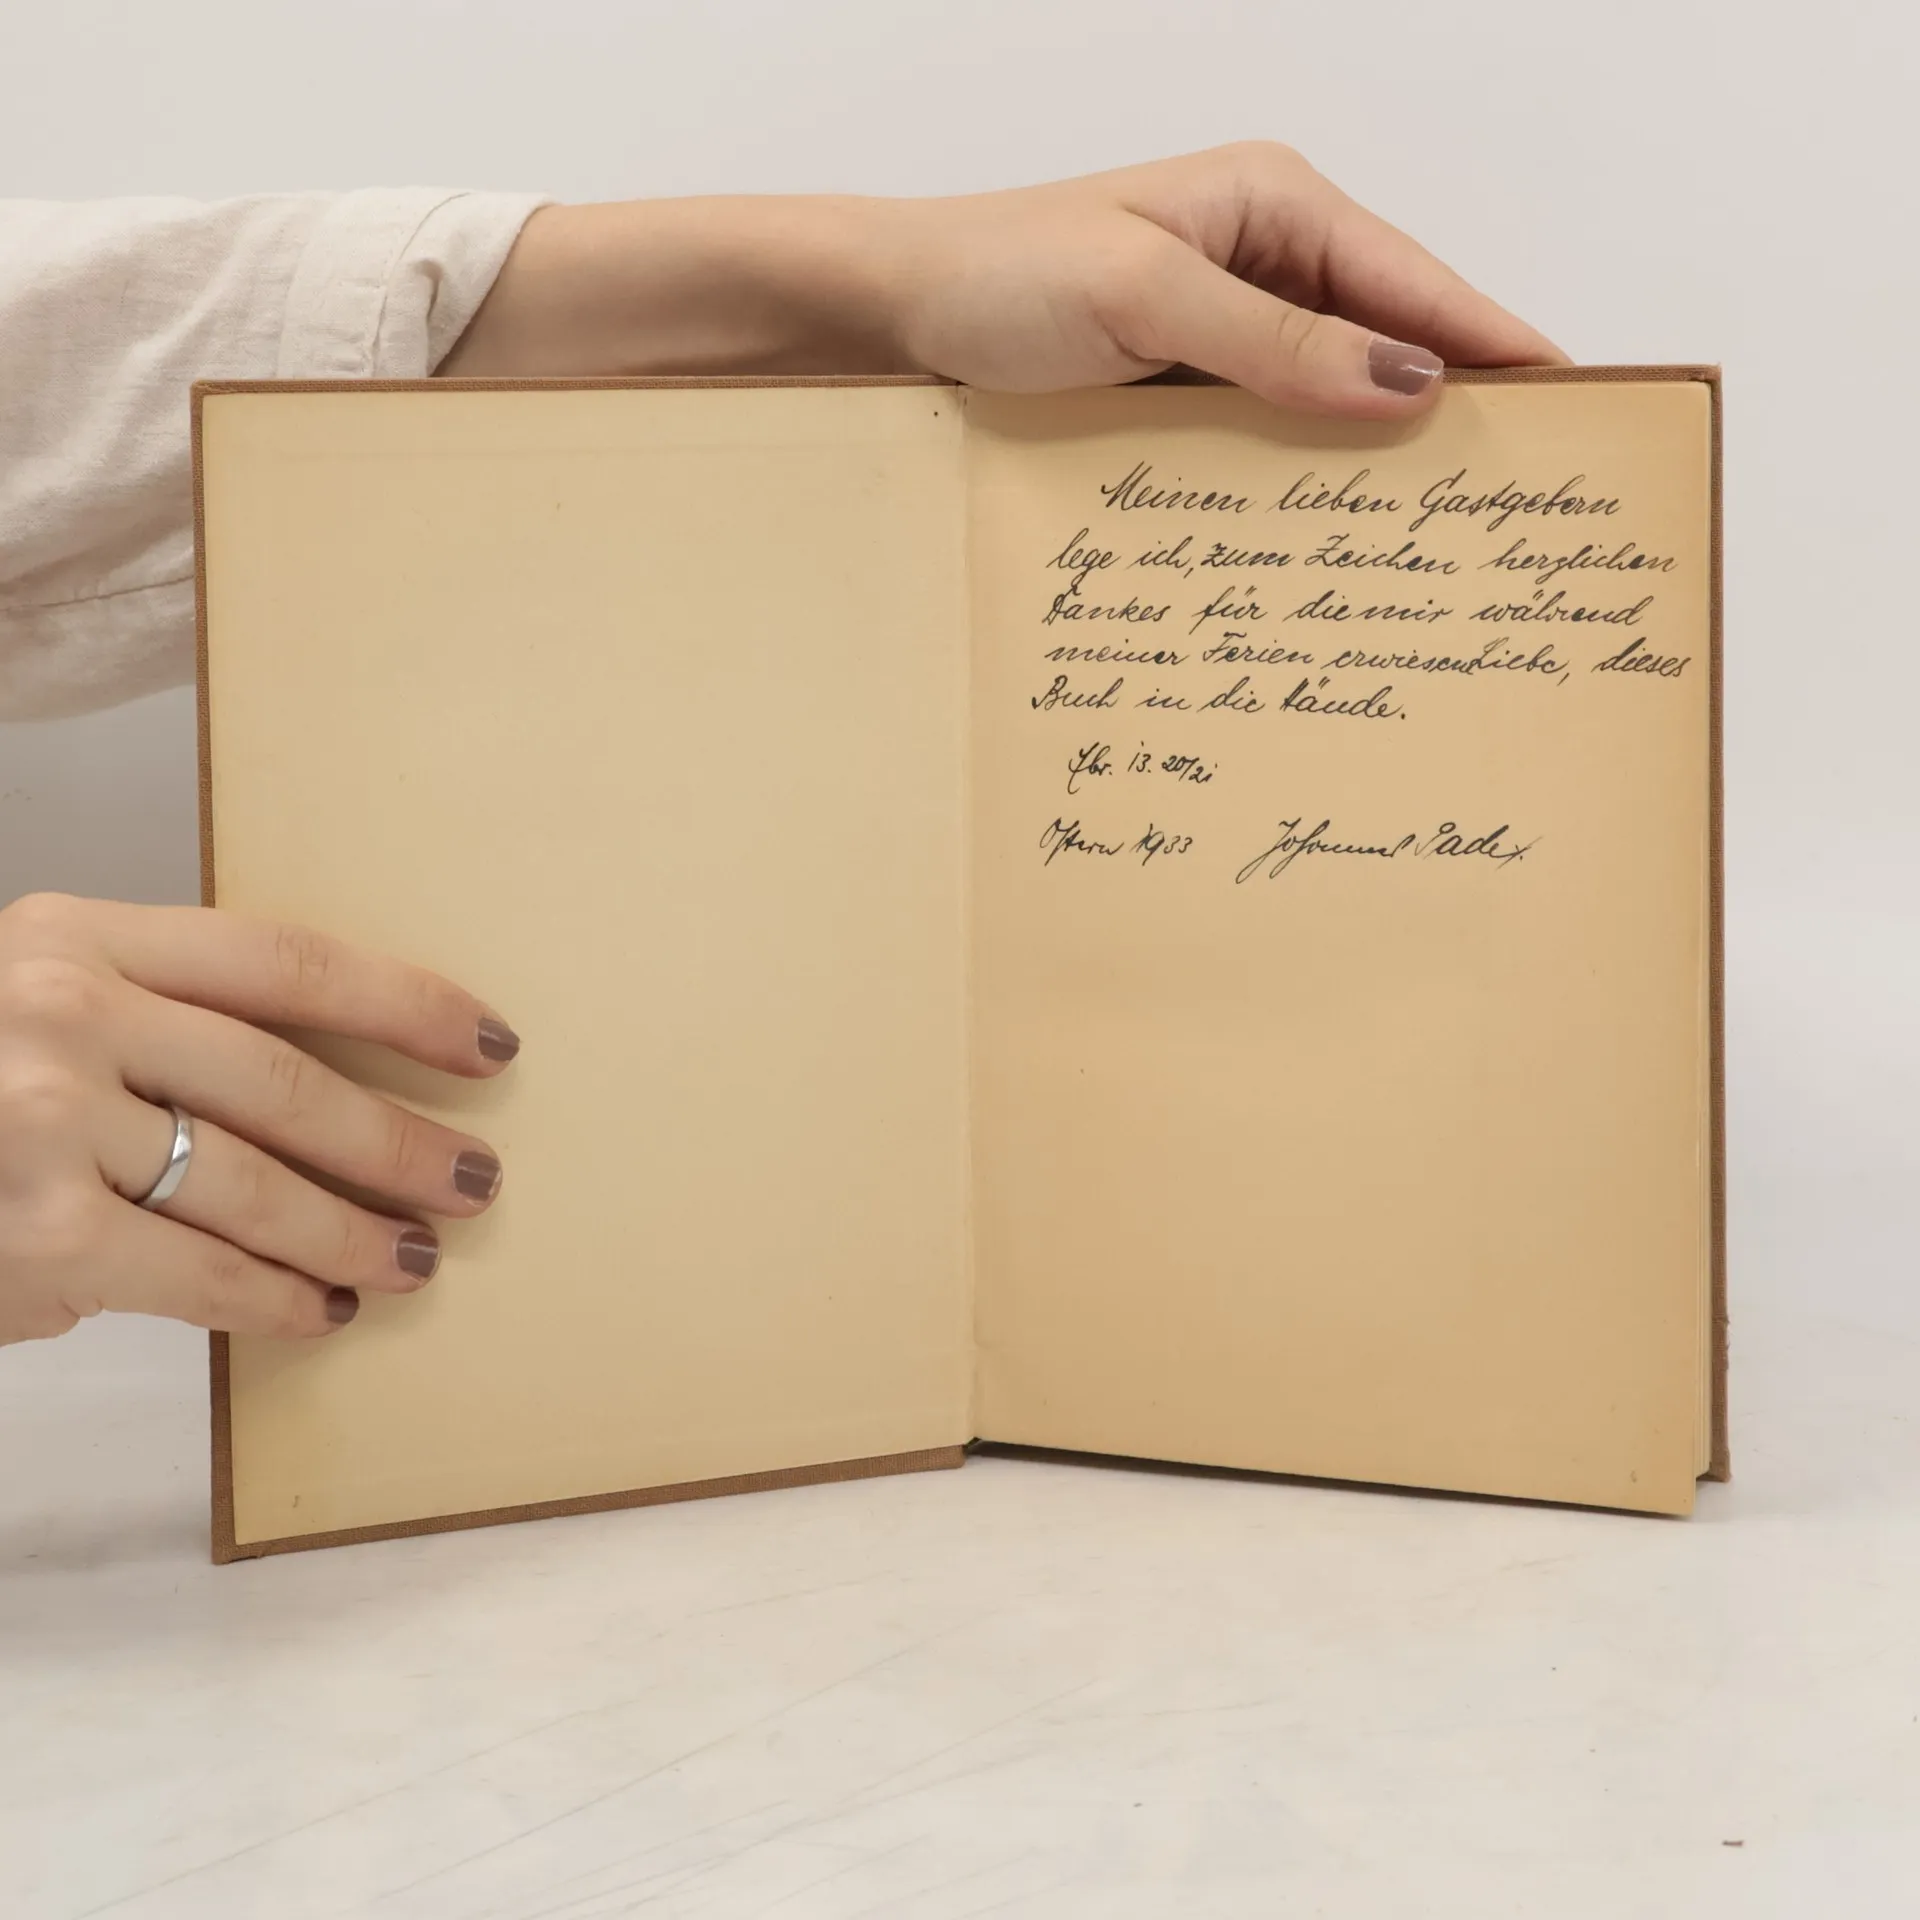 Meinen lieben Gastgebern
lege ich, zum Zeichen herzlichen
Dankes für die mir während
meiner Ferien erwiesene Liebe, dieses
Buch in die Hände.
Hbr. 13. 20/21
Ostern 1933 Johannes